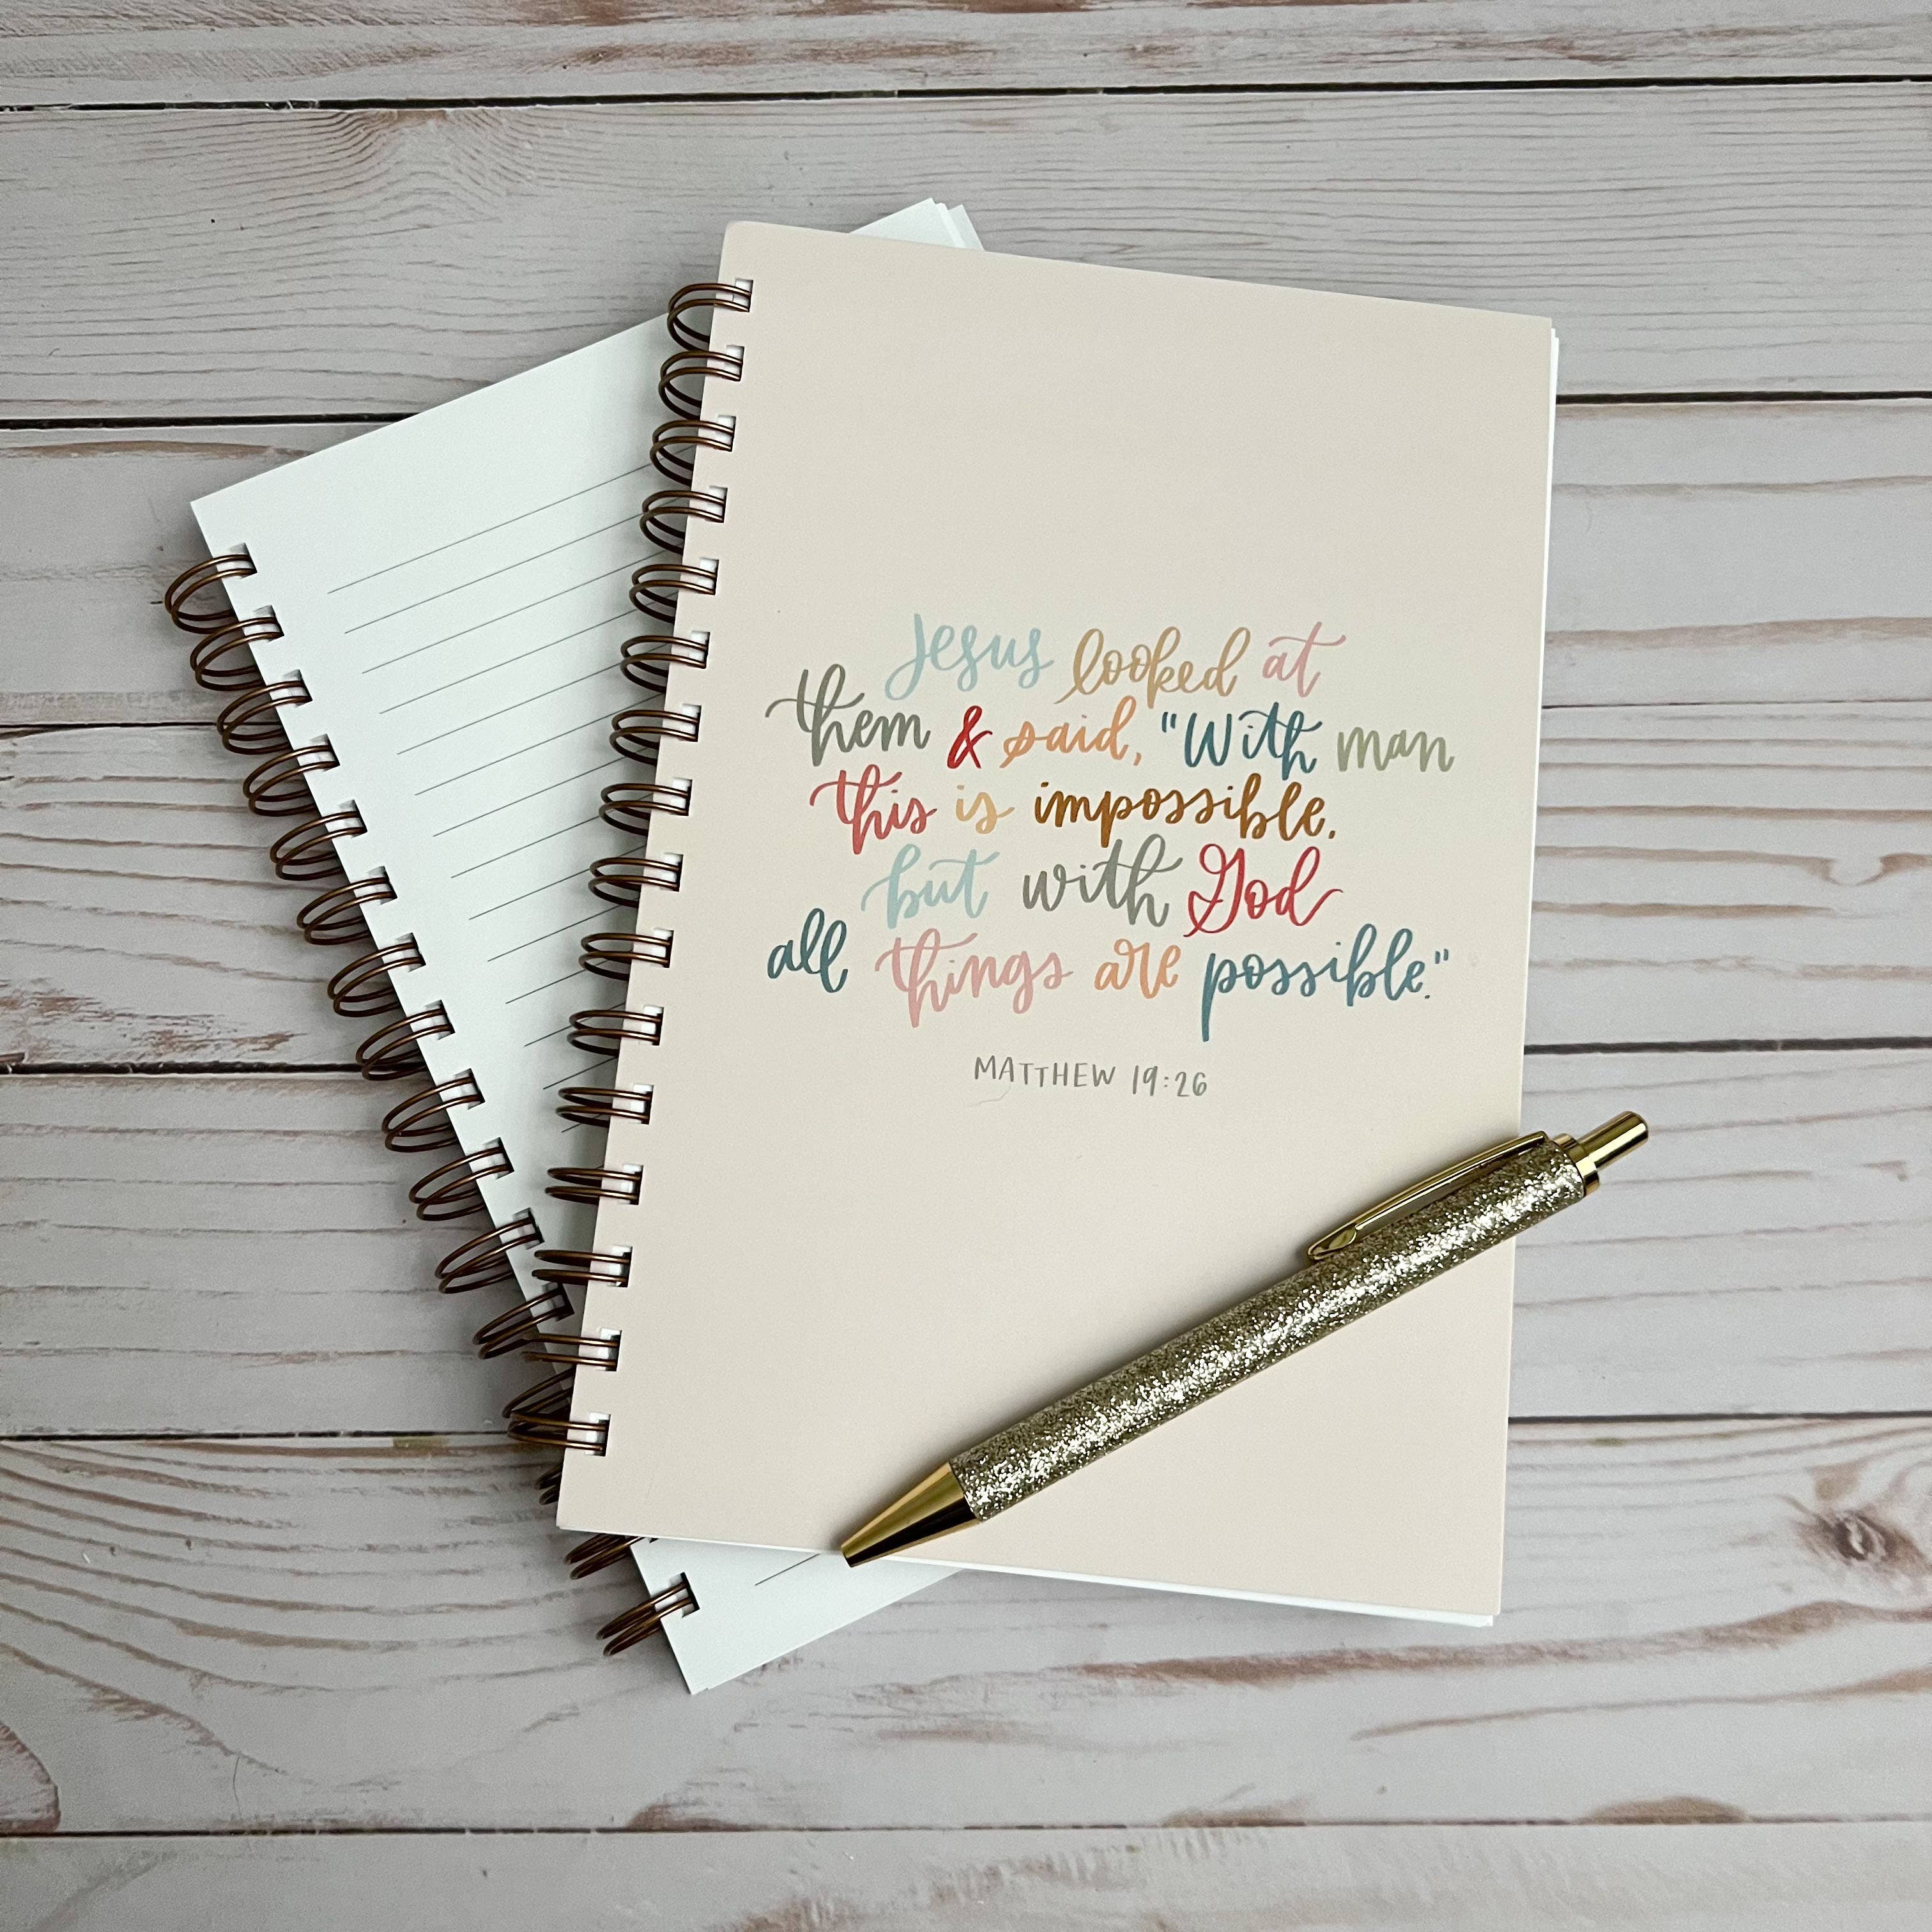 Jesus looked at
them & said, "With man
this is impossible.
but with God
all things are possible."
MATTHEW 19:26